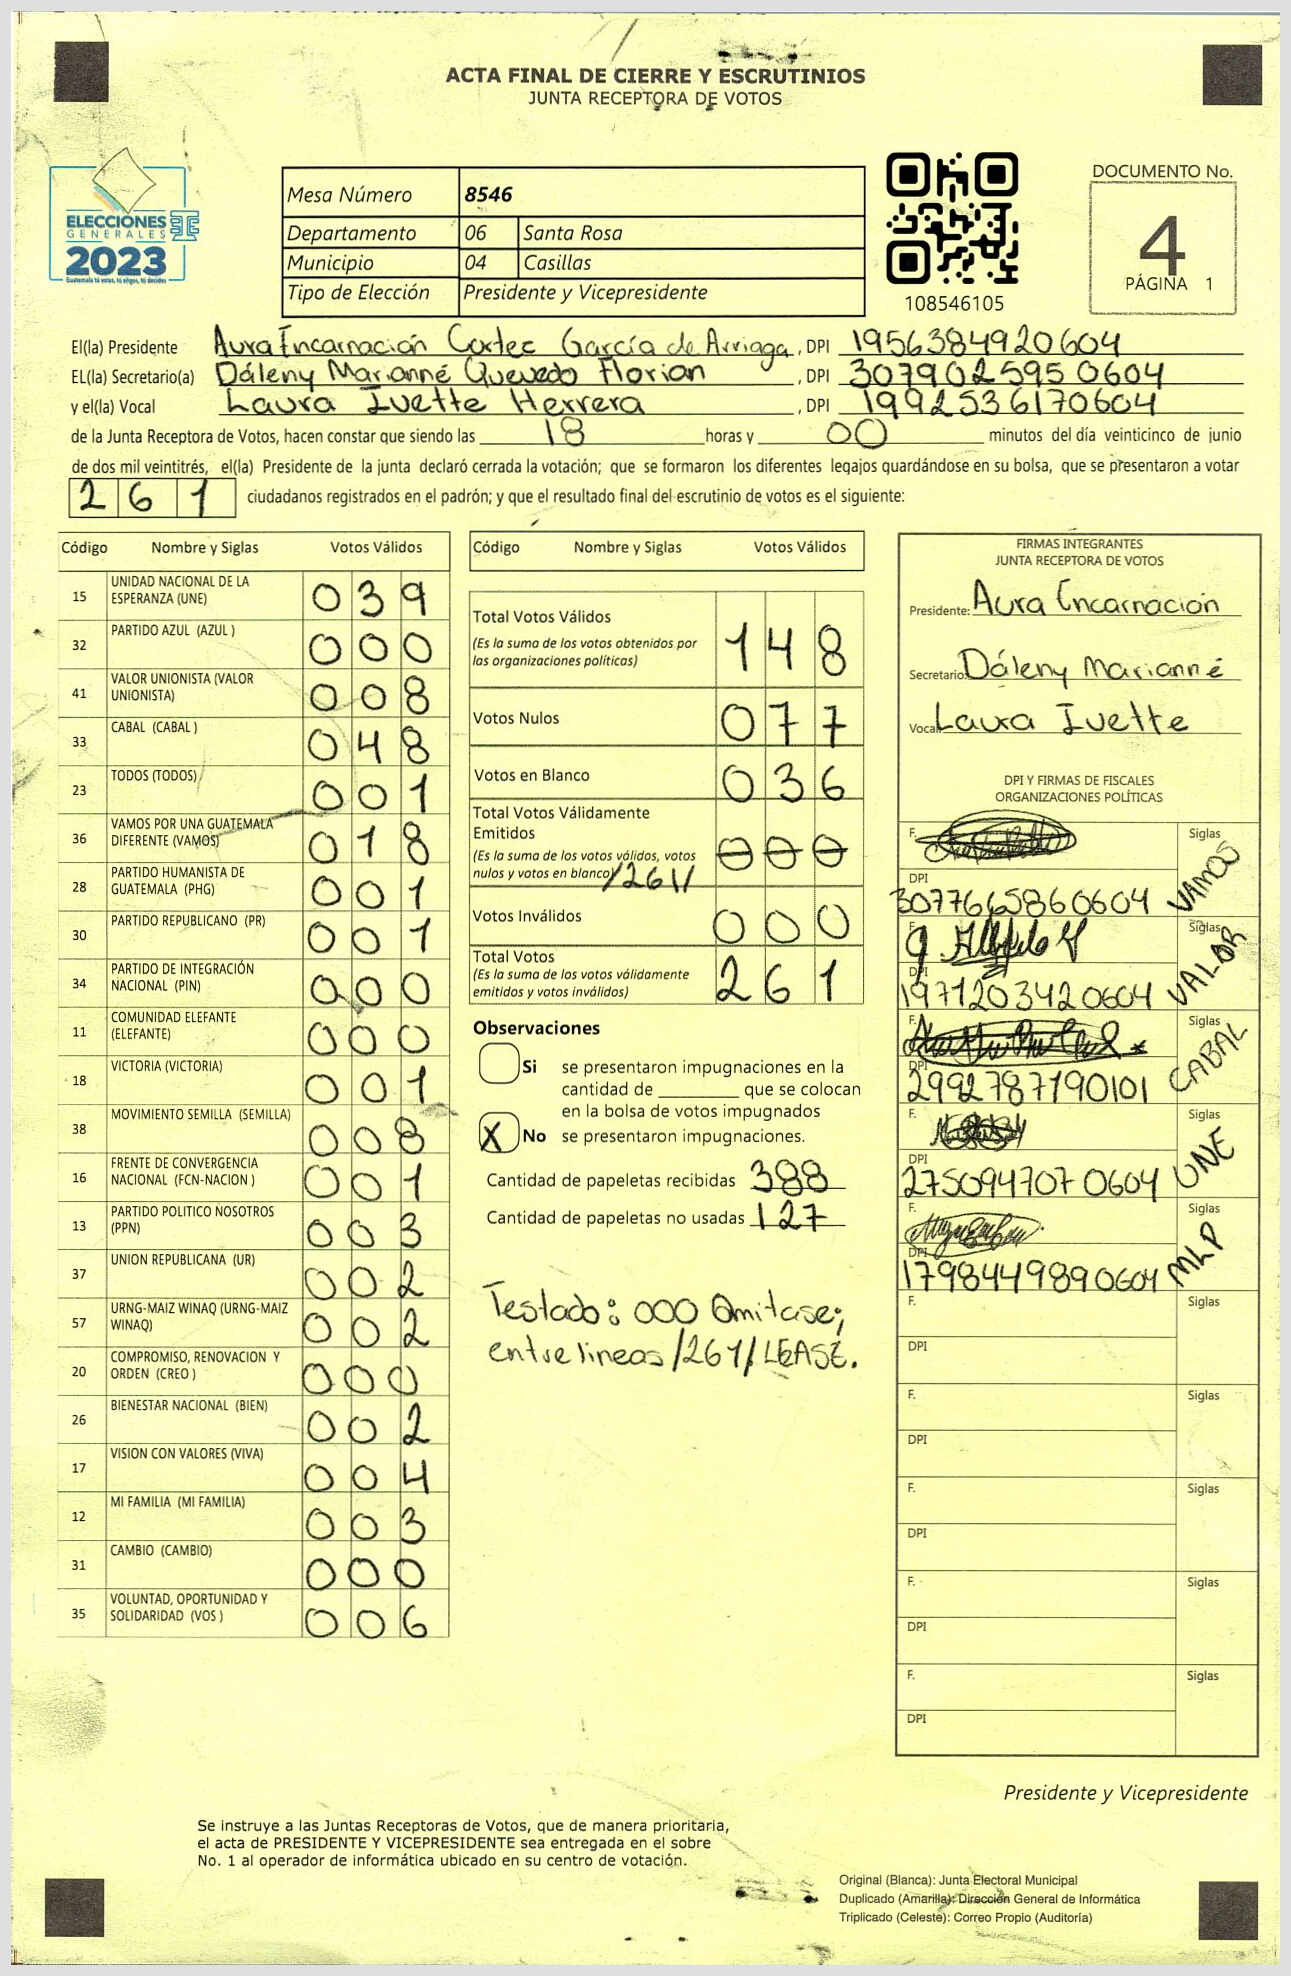 ACTA FINAL DE CIERRE Y ESCRUTINIOS
JUNTA RECEPTORA DE VOTOS
ELECCIONES
GENERALES
2023
Guatemala tú votas, tú eliges, tú decides
Mesa Número 8546
Departamento 06 Santa Rosa
Municipio 04 Casillas
Tipo de Elección Presidente y Vicepresidente
108546105
DOCUMENTO No.
4
PÁGINA 1
El(la) Presidente Aura Encarnación Cortec García de Arriaga, DPI 1956384920604
EL(la) Secretario(a) Dáleny Marianné Quevedo Florian, DPI 3079025950604
y el(la) Vocal Laura Ivette Herrera, DPI 1992536170604
de la Junta Receptora de Votos, hacen constar que siendo las 18 horas y 00 minutos del día veinticinco de junio
de dos mil veintitrés, el(la) Presidente de la junta declaró cerrada la votación; que se formaron los diferentes legajos guardándose en su bolsa, que se presentaron a votar
261 ciudadanos registrados en el padrón; y que el resultado final del escrutinio de votos es el siguiente:
Código Nombre y Siglas Votos Válidos
15 UNIDAD NACIONAL DE LA ESPERANZA (UNE) 039
32 PARTIDO AZUL (AZUL ) 000
41 VALOR UNIONISTA (VALOR UNIONISTA) 008
33 CABAL (CABAL ) 048
23 TODOS (TODOS) 001
36 VAMOS POR UNA GUATEMALA DIFERENTE (VAMOS) 018
28 PARTIDO HUMANISTA DE GUATEMALA (PHG) 001
30 PARTIDO REPUBLICANO (PR) 001
34 PARTIDO DE INTEGRACIÓN NACIONAL (PIN) 000
11 COMUNIDAD ELEFANTE (ELEFANTE) 000
18 VICTORIA (VICTORIA) 001
38 MOVIMIENTO SEMILLA (SEMILLA) 008
16 FRENTE DE CONVERGENCIA NACIONAL (FCN-NACION ) 001
13 PARTIDO POLITICO NOSOTROS (PPN) 003
37 UNION REPUBLICANA (UR) 002
57 URNG-MAIZ WINAQ (URNG-MAIZ WINAQ) 002
20 COMPROMISO, RENOVACION Y ORDEN (CREO ) 000
26 BIENESTAR NACIONAL (BIEN) 002
17 VISION CON VALORES (VIVA) 004
12 MI FAMILIA (MI FAMILIA) 003
31 CAMBIO (CAMBIO) 000
35 VOLUNTAD, OPORTUNIDAD Y SOLIDARIDAD (VOS ) 006
Código Nombre y Siglas Votos Válidos
Total Votos Válidos 148
(Es la suma de los votos obtenidos por
las organizaciones políticas)
Votos Nulos 077
Votos en Blanco 036
Total Votos Válidamente
Emitidos 000
(Es la suma de los votos válidos, votos
nulos y votos en blanco) /261/
Votos Inválidos 000
Total Votos 261
(Es la suma de los votos válidamente
emitidos y votos inválidos)
Observaciones
Si se presentaron impugnaciones en la
cantidad de ________ que se colocan
en la bolsa de votos impugnados
X No se presentaron impugnaciones.
Cantidad de papeletas recibidas 388
Cantidad de papeletas no usadas 127
Testado: 000 Omitase;
entre lineas /261/ LEASE.
FIRMAS INTEGRANTES
JUNTA RECEPTORA DE VOTOS
Presidente: Aura Encarnación
Secretario: Dáleny Marianné
Vocal: Laura Ivette
DPI Y FIRMAS DE FISCALES
ORGANIZACIONES POLÍTICAS
F. Siglas VAMOS
DPI 3077665860604
F. Siglas VALOR
DPI 1971203420604
F. Siglas CABAL
DPI 2992787190101
F. Siglas UNE
DPI 2750947070604
F. Siglas MLP
DPI 1798449890604
F. Siglas
DPI
F. Siglas
DPI
F. Siglas
DPI
F. Siglas
DPI
F. Siglas
DPI
Presidente y Vicepresidente
Se instruye a las Juntas Receptoras de Votos, que de manera prioritaria,
el acta de PRESIDENTE Y VICEPRESIDENTE sea entregada en el sobre
No. 1 al operador de informática ubicado en su centro de votación.
Original (Blanca): Junta Electoral Municipal
Duplicado (Amarilla): Dirección General de Informática
Triplicado (Celeste): Correo Propio (Auditoría)